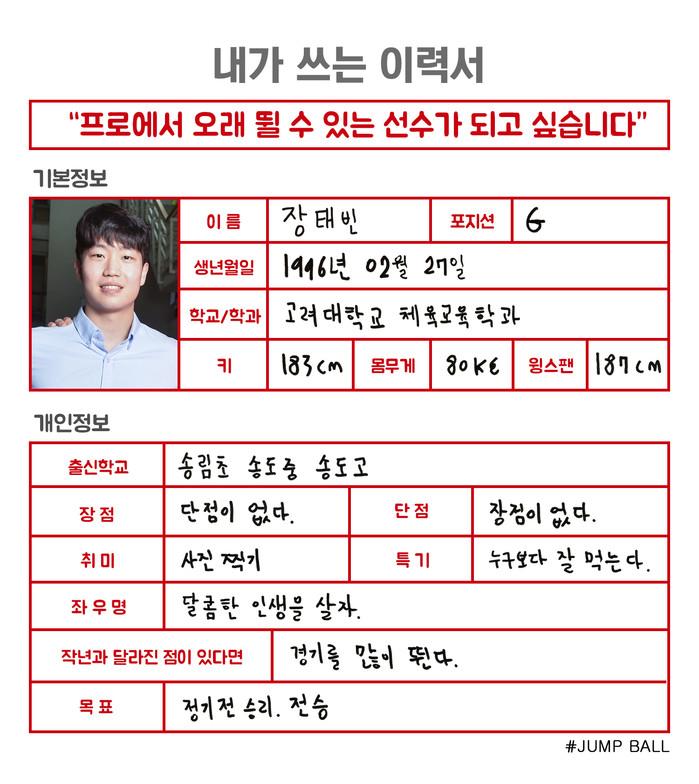 내가 쓰는 이력서
“프로에서 오래 뛸 수 있는 선수가 되고 싶습니다”
기본정보
이 름 장태빈 포지션 G
생년월일 1996년 02월 27일
학교/학과 고려대학교 체육교육학과
키 183cm 몸무게 80KG 윙스팬 187cm
개인정보
출신학교 송림초 송도중 송도고
장 점 단점이 없다. 단 점 장점이 없다.
취 미 사진 찍기 특 기 누구보다 잘 먹는다.
좌 우 명 달콤한 인생을 살자.
작년과 달라진 점이 있다면 경기를 많이 뛴다.
목 표 정기전 승리. 전승
#JUMP BALL